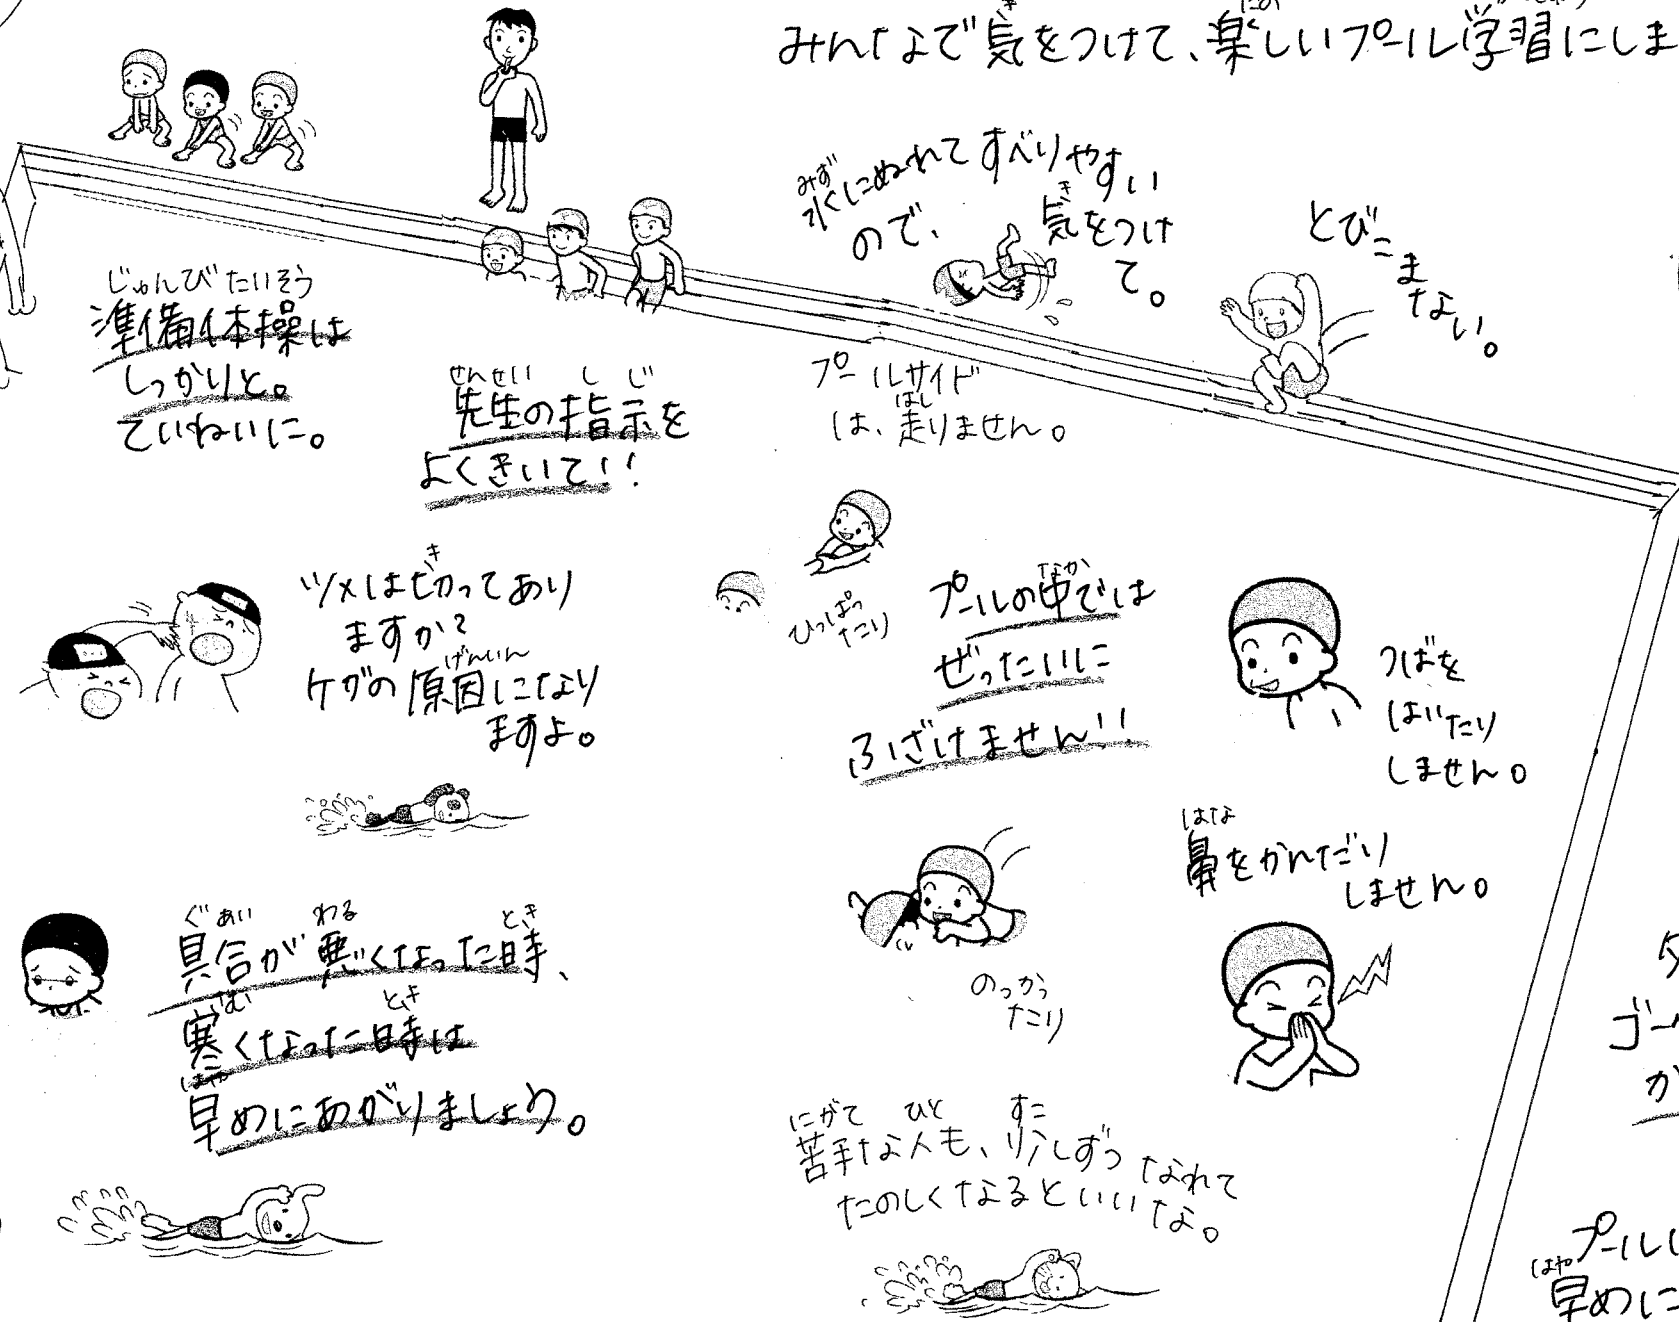 みんなで気をつけて、楽しいプール学習にしま
水にぬれてすべりやすい
ので、気をつけ
て。
とびこまない。
じゅんびたいそう
準備体操は
しっかりと。
ていねいに。
せんせい しじ
先生の指示を
よくきいて!!
プールサイド
はし
は、走りません。
き
ツメは切ってあり
ますか?
げんいん
ケガの原因になり
ますよ。
ひっぱっ
たり
なか
プールの中では
ぜったいに
ふざけません!!
つばを
はいたり
しません。
はな
鼻をかんだり
しません。
のっかっ
たり
ぐあい わる とき
具合が悪くなった時、
さむ とき
寒くなった時は
はや
早めにあがりましょう。
にがて ひと すこ
苦手な人も、少しずつなれて
たのしくなるといいな。
ゴー
か
プールに
はや
早めに